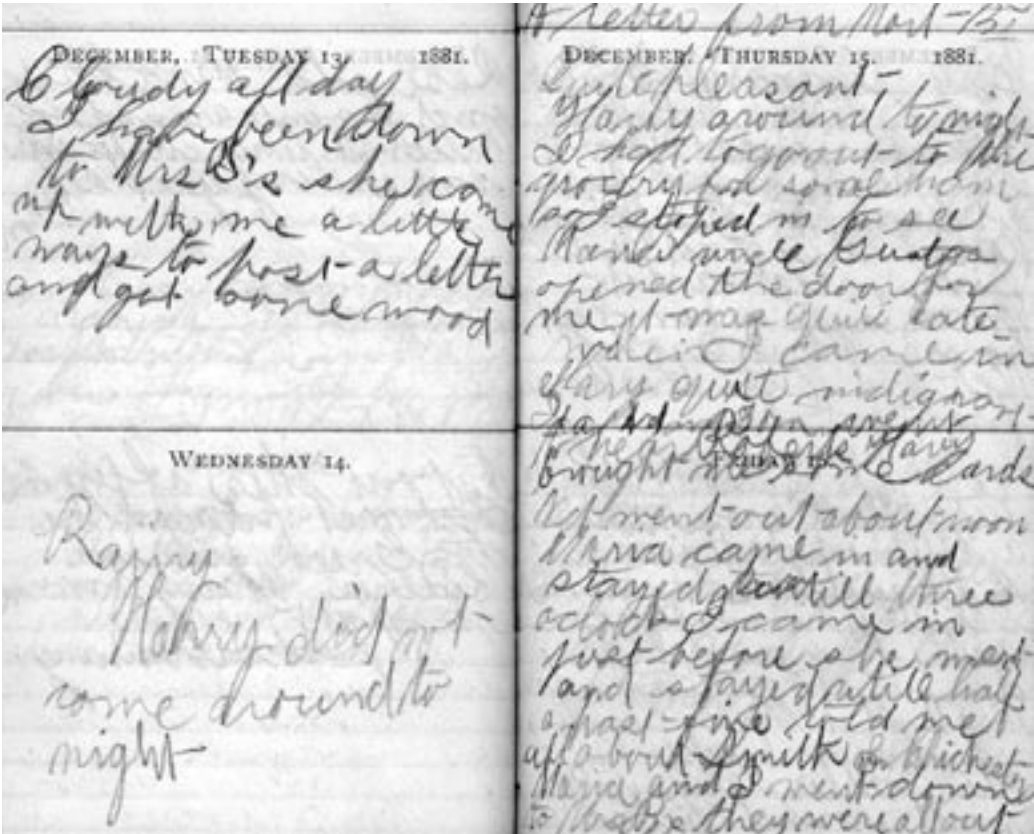 DECEMBER, TUESDAY 13. 1881.
Cloudy all day
I have been down
to Mrs S's she come
up with me a little
ways to post a letter
and get some wood
WEDNESDAY 14.
Rainy
Harry did not
come around to
night
A letter from Mort
DECEMBER, THURSDAY 15. 1881.
Quite pleasant
Harry around to night
I had to go out to the
grocery for some ham
so I stoped in to see
uncle Gustos
opened the door for
me it was quite late
when I came in
Harry quit indignant
went
Harry
brought me some Cards
went out about noon
Maria came in and
stayed untill three
oclock I came in
just before she went
and stayed untill half
a past five told me
all about Smith
Maria and I went down
to they were all out